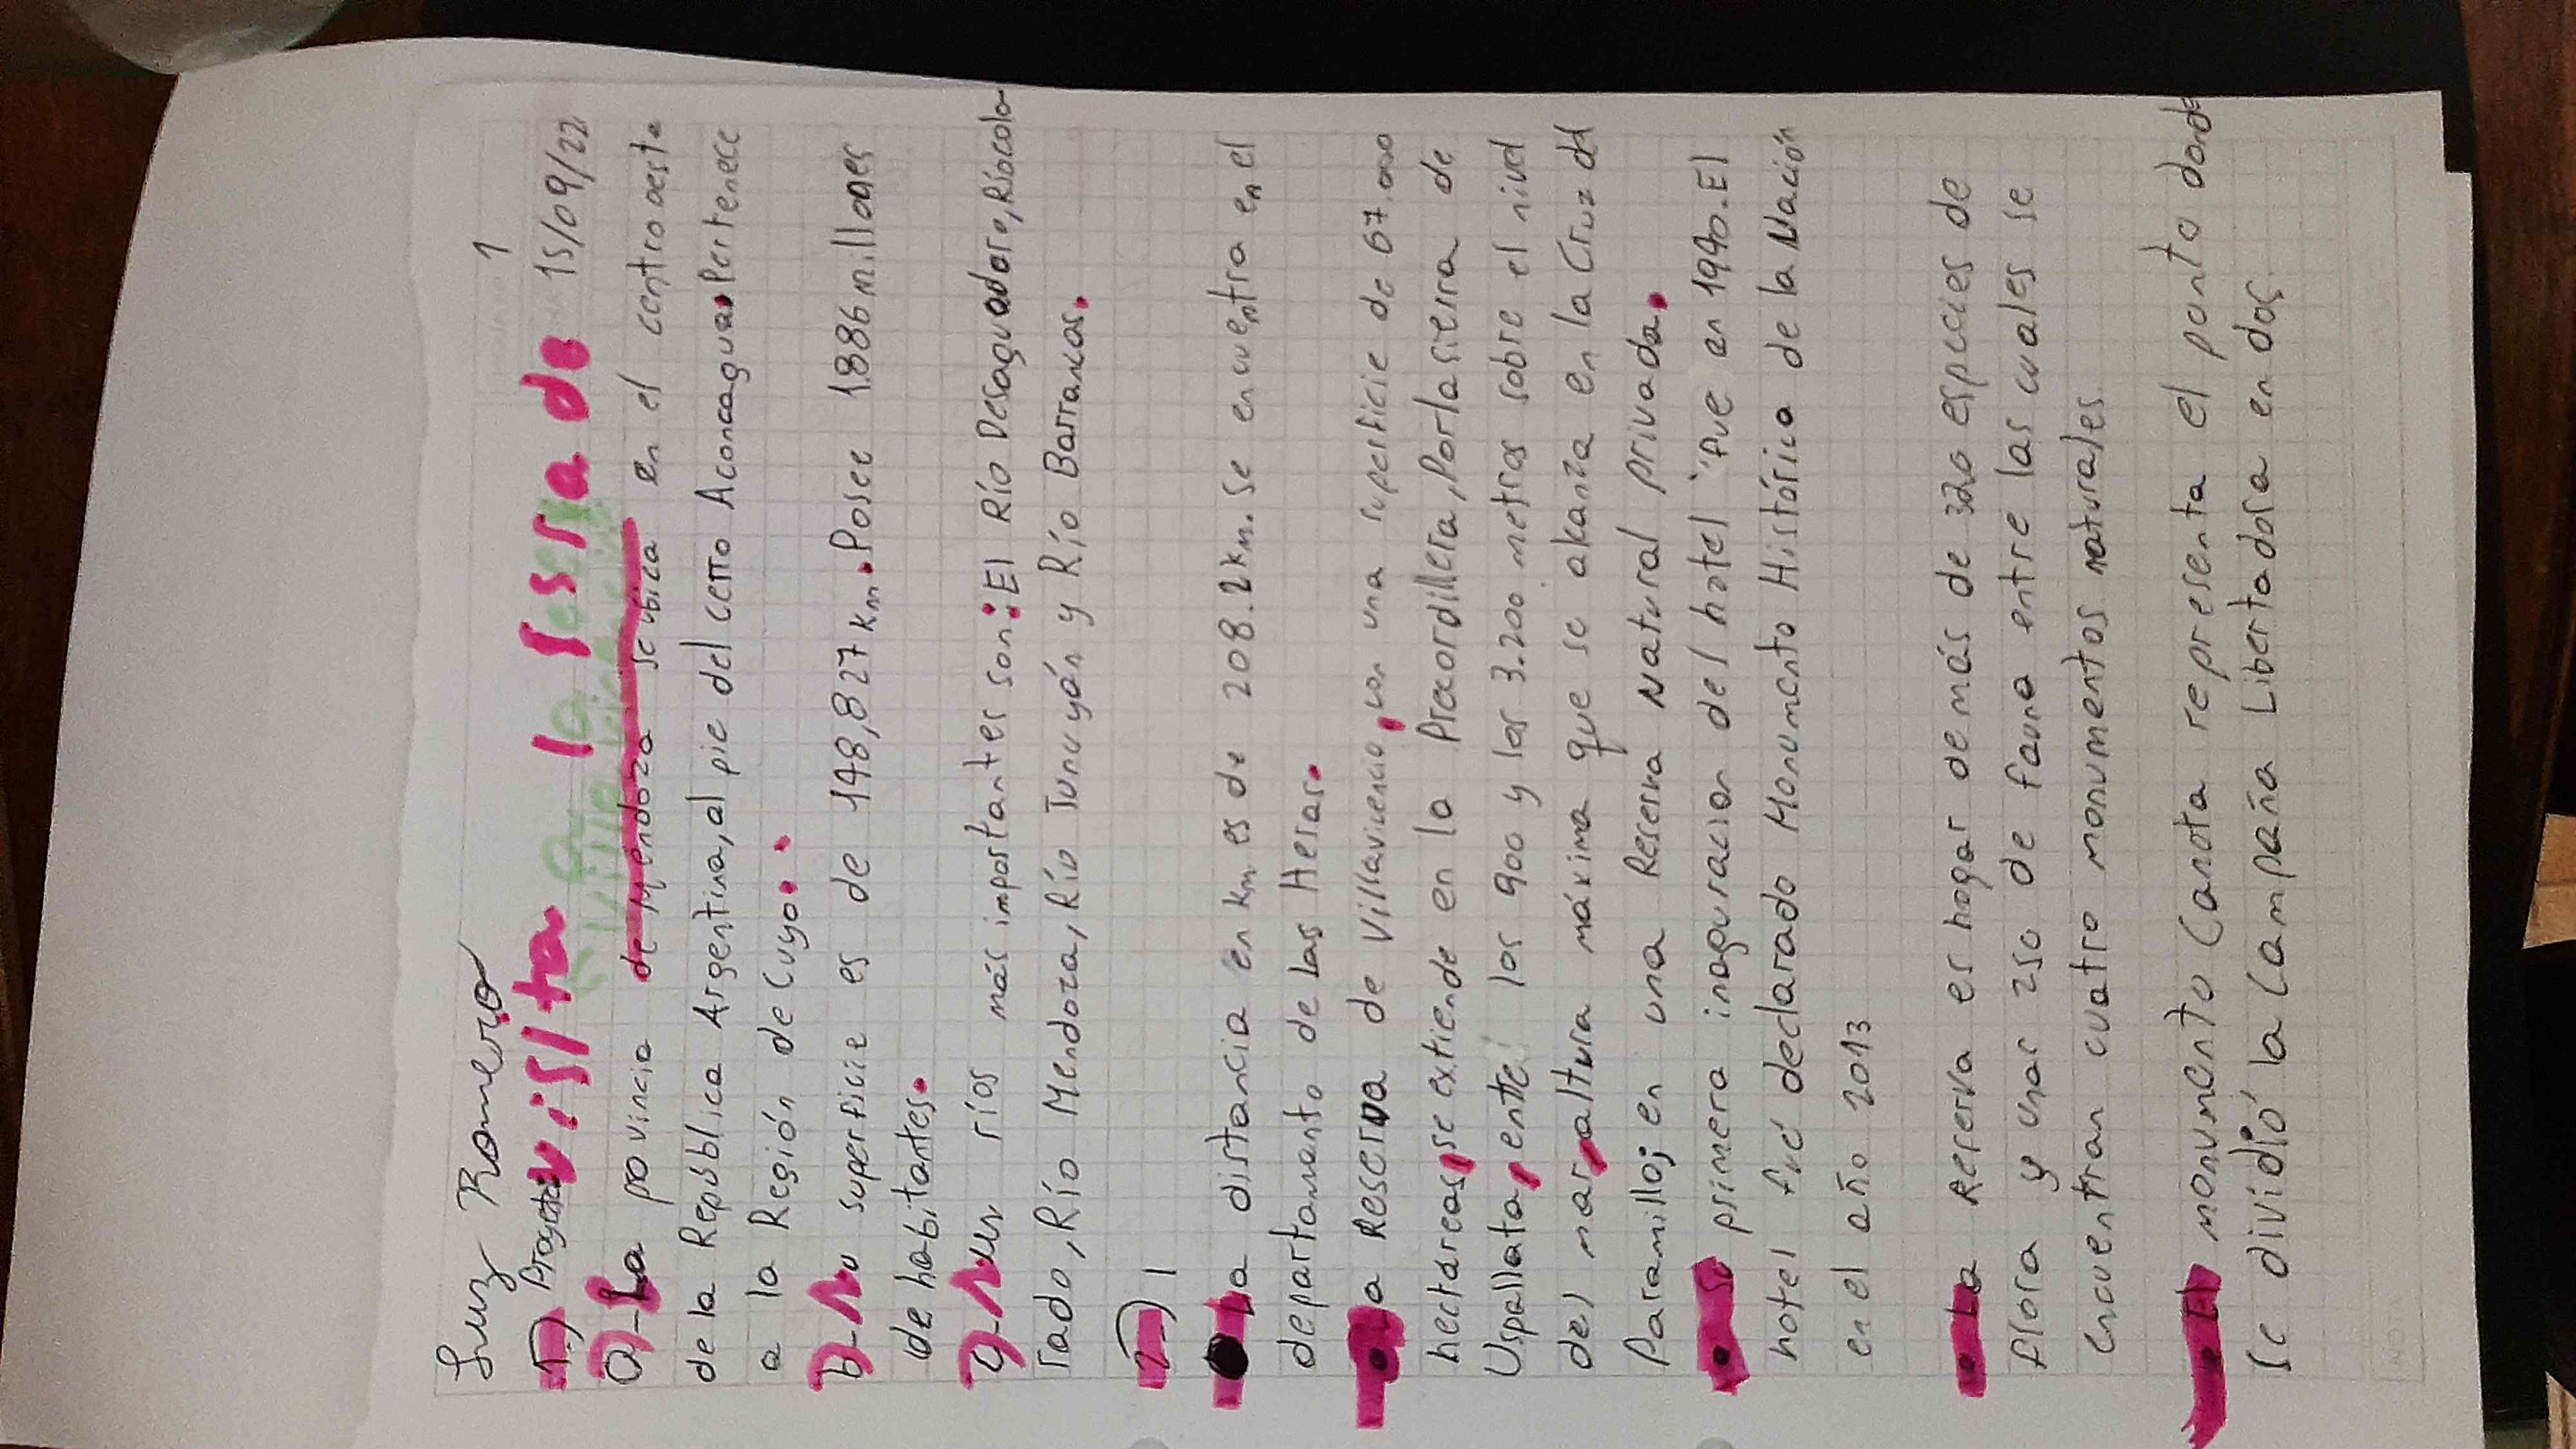 Luz Romero 1
1-) Proyecto visita la Sessa de 15/09/22
a)-La provincia de Mendoza se ubica en el centro oeste
de la República Argentina, al pie del cerro Aconcagua. Pertenece
a la Región de Cuyo.
b)-Su superficie es de 148,827 km. Posee 1.886 millones
de habitantes.
c)-Sus ríos más importantes son: El Río Desaguadore, Río colo
rado, Río Mendoza, Río Tunuyán y Río Barrancas.
2-)
• La distancia en km es de 208.2 km. Se encuentra en el
departamento de Las Heras.
• La Reserva de Villavicencio, con una superficie de 67.000
hectáreas, se extiende en la Precordillera, Por la sierra de
Uspallata, entre los 900 y los 3.200 metros sobre el nivel
del mar, altura máxima que se alcanza en la Cruz del
Paramillo; en una Reserva Natural privada.
• Su primera inaguracion del hotel fue en 1940. El
hotel fué declarado Monumento Histórico de la Nación
en el año 2013
• La Reserva es hogar de más de 320 especies de
flora y unas 250 de fauna entre las cuales se
encuentran cuatro monumentos naturales.
• El monumento Canota representa el punto donde
se dividió la Campaña Libertadora en dos.